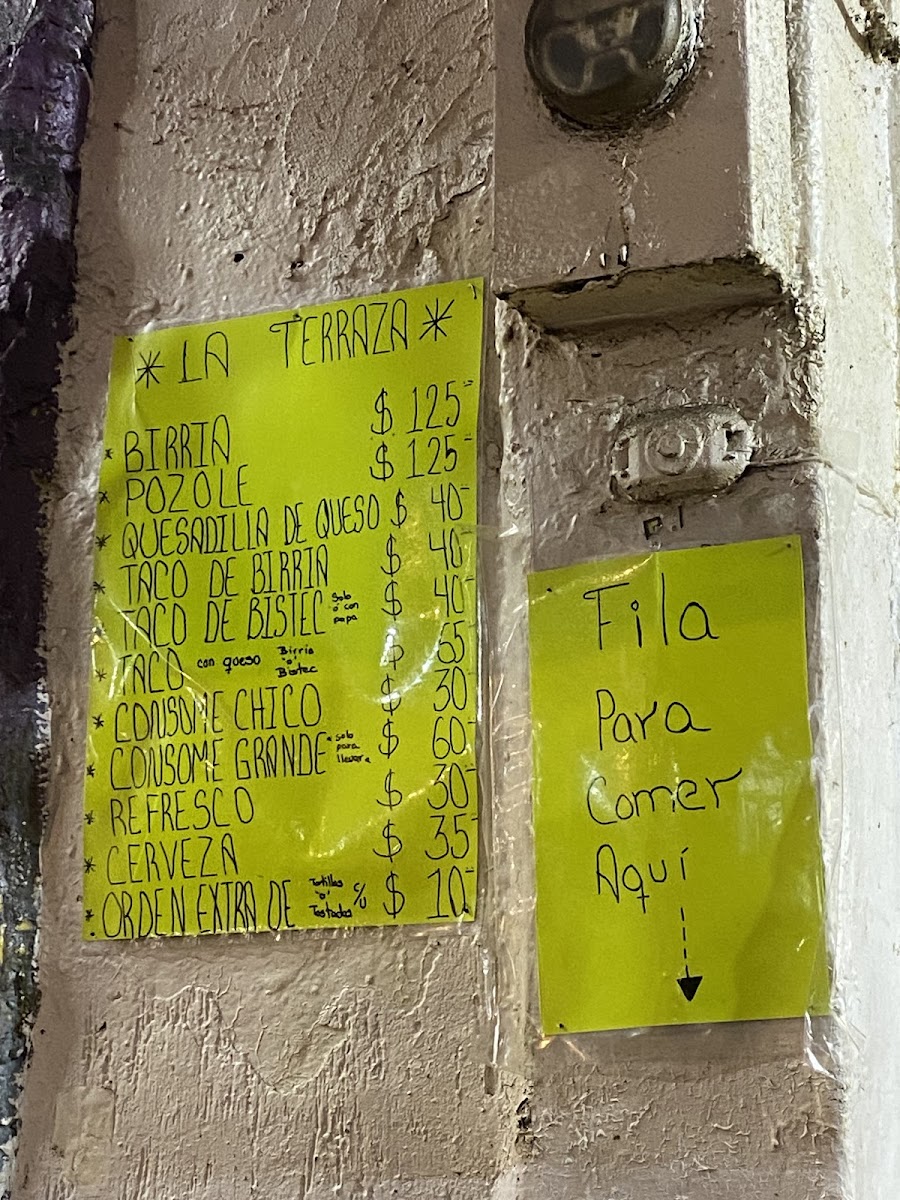 * LA TERRAZA *
* BIRRIA $ 125=
* POZOLE $ 125=
* QUESADILLA DE QUESO $ 40=
* TACO DE BIRRIA $ 40=
TACO DE BISTEC Solo ó con papa $ 40=
* TACO con queso Birria "o" Bistec $ 55
* CONSOME CHICO $ 30
* CONSOME GRANDE * solo para llevar * $ 60=
* REFRESCO $ 30=
* CERVEZA $ 35=
* ORDEN EXTRA DE Tortillas "o" Tostadas c/u $ 10=
Fila
Para
Comer
Aquí